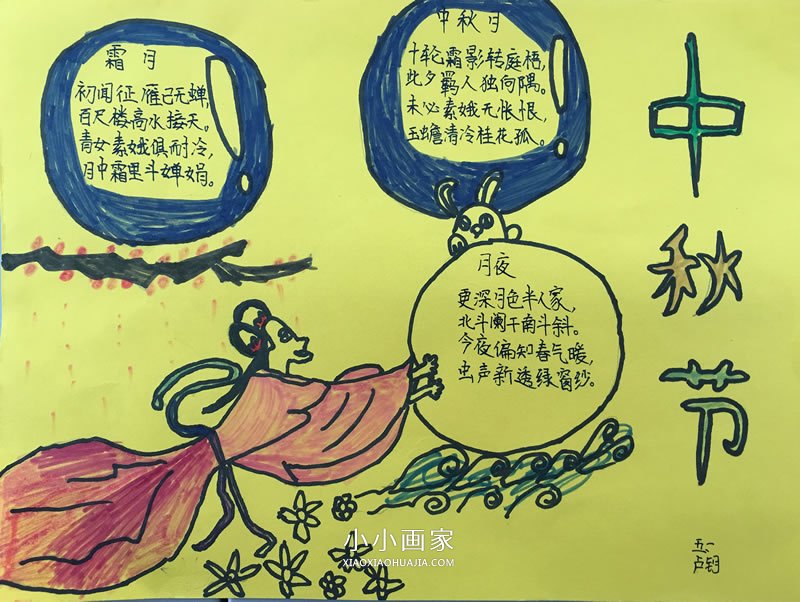 霜月
初闻征雁已无蝉,
百尺楼高水接天。
青女素娥俱耐冷,
月中霜里斗婵娟。
中秋月
十轮霜影转庭梧,
此夕羁人独向隅。
未必素娥无怅恨,
玉蟾清冷桂花孤。
月夜
更深月色半人家,
北斗阑干南斗斜。
今夜偏知春气暖,
虫声新透绿窗纱。
中
秋
节
五.一
小小画家
XIAOXIAOHUAJIA.COM